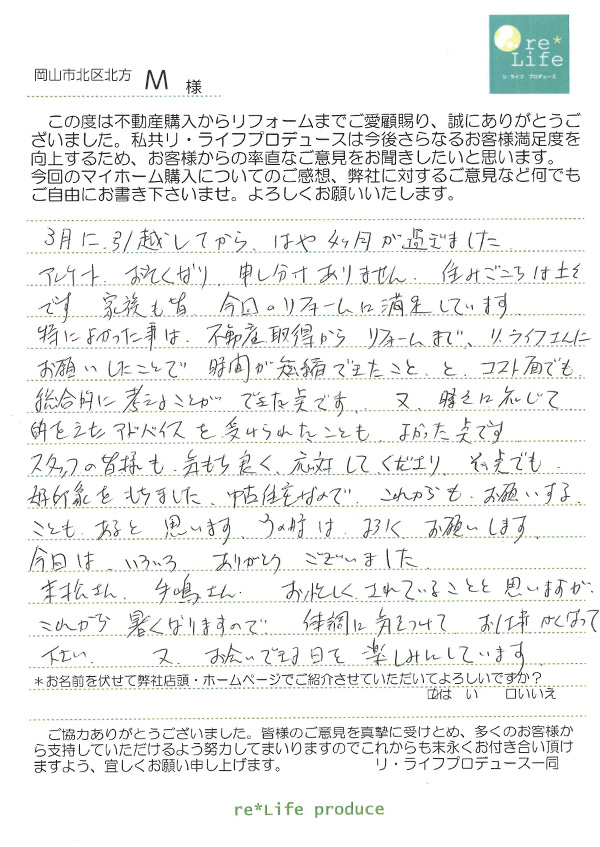 re*
Life
リ・ライフ プロデュース
岡山市北区北方 M 様
この度は不動産購入からリフォームまでご愛顧賜り、誠にありがとうご
ざいました。私共リ・ライフプロデュースは今後さらなるお客様満足度を
向上するため、お客様からの率直なご意見をお聞きしたいと思います。
今回のマイホーム購入についてのご感想、弊社に対するご意見など何でも
ご自由にお書き下さいませ。よろしくお願いいたします。
3月に引越してから、はや4ヶ月が過ぎました
アンケート、おそくなり、申し分けありません。住みごこちは上々
です 家族も皆 今回のリフォームに満足しています。
特によかった事は、不動産取得から リフォームまで、リ・ライフさんに
お願いしたことで 時間が短縮できたこと、と、コスト面でも
総合的に考えることが できた点です、又、時々に応じて
的をえたアドバイスを受けられたことも、よかった点です
スタッフの皆様も、気もち良く、応対してくださり、その点でも
好印象をもちました、中古住宅なので、これからも、お願いする
ことも、あると 思います、その時は、よろしく お願いします、
今回は、いろいろ、ありがとう ございました
末松さん、 お忙しく、されていることと思いますが、
これから 暑くなりますので、 体調に気をつけて お仕事がんばって
下さい、 又、お会いできる日を 楽しみにしています、
*お名前を伏せて弊社店頭・ホームページでご紹介させていただいてよろしいですか？
☑は い □いいえ
ご協力ありがとうございました。皆様のご意見を真摯に受けとめ、多くのお客様か
ら支持していただけるよう努力してまいりますのでこれからも末永くお付き合い頂け
ますよう、宜しくお願い申し上げます。 リ・ライフプロデュース一同
re*Life produce